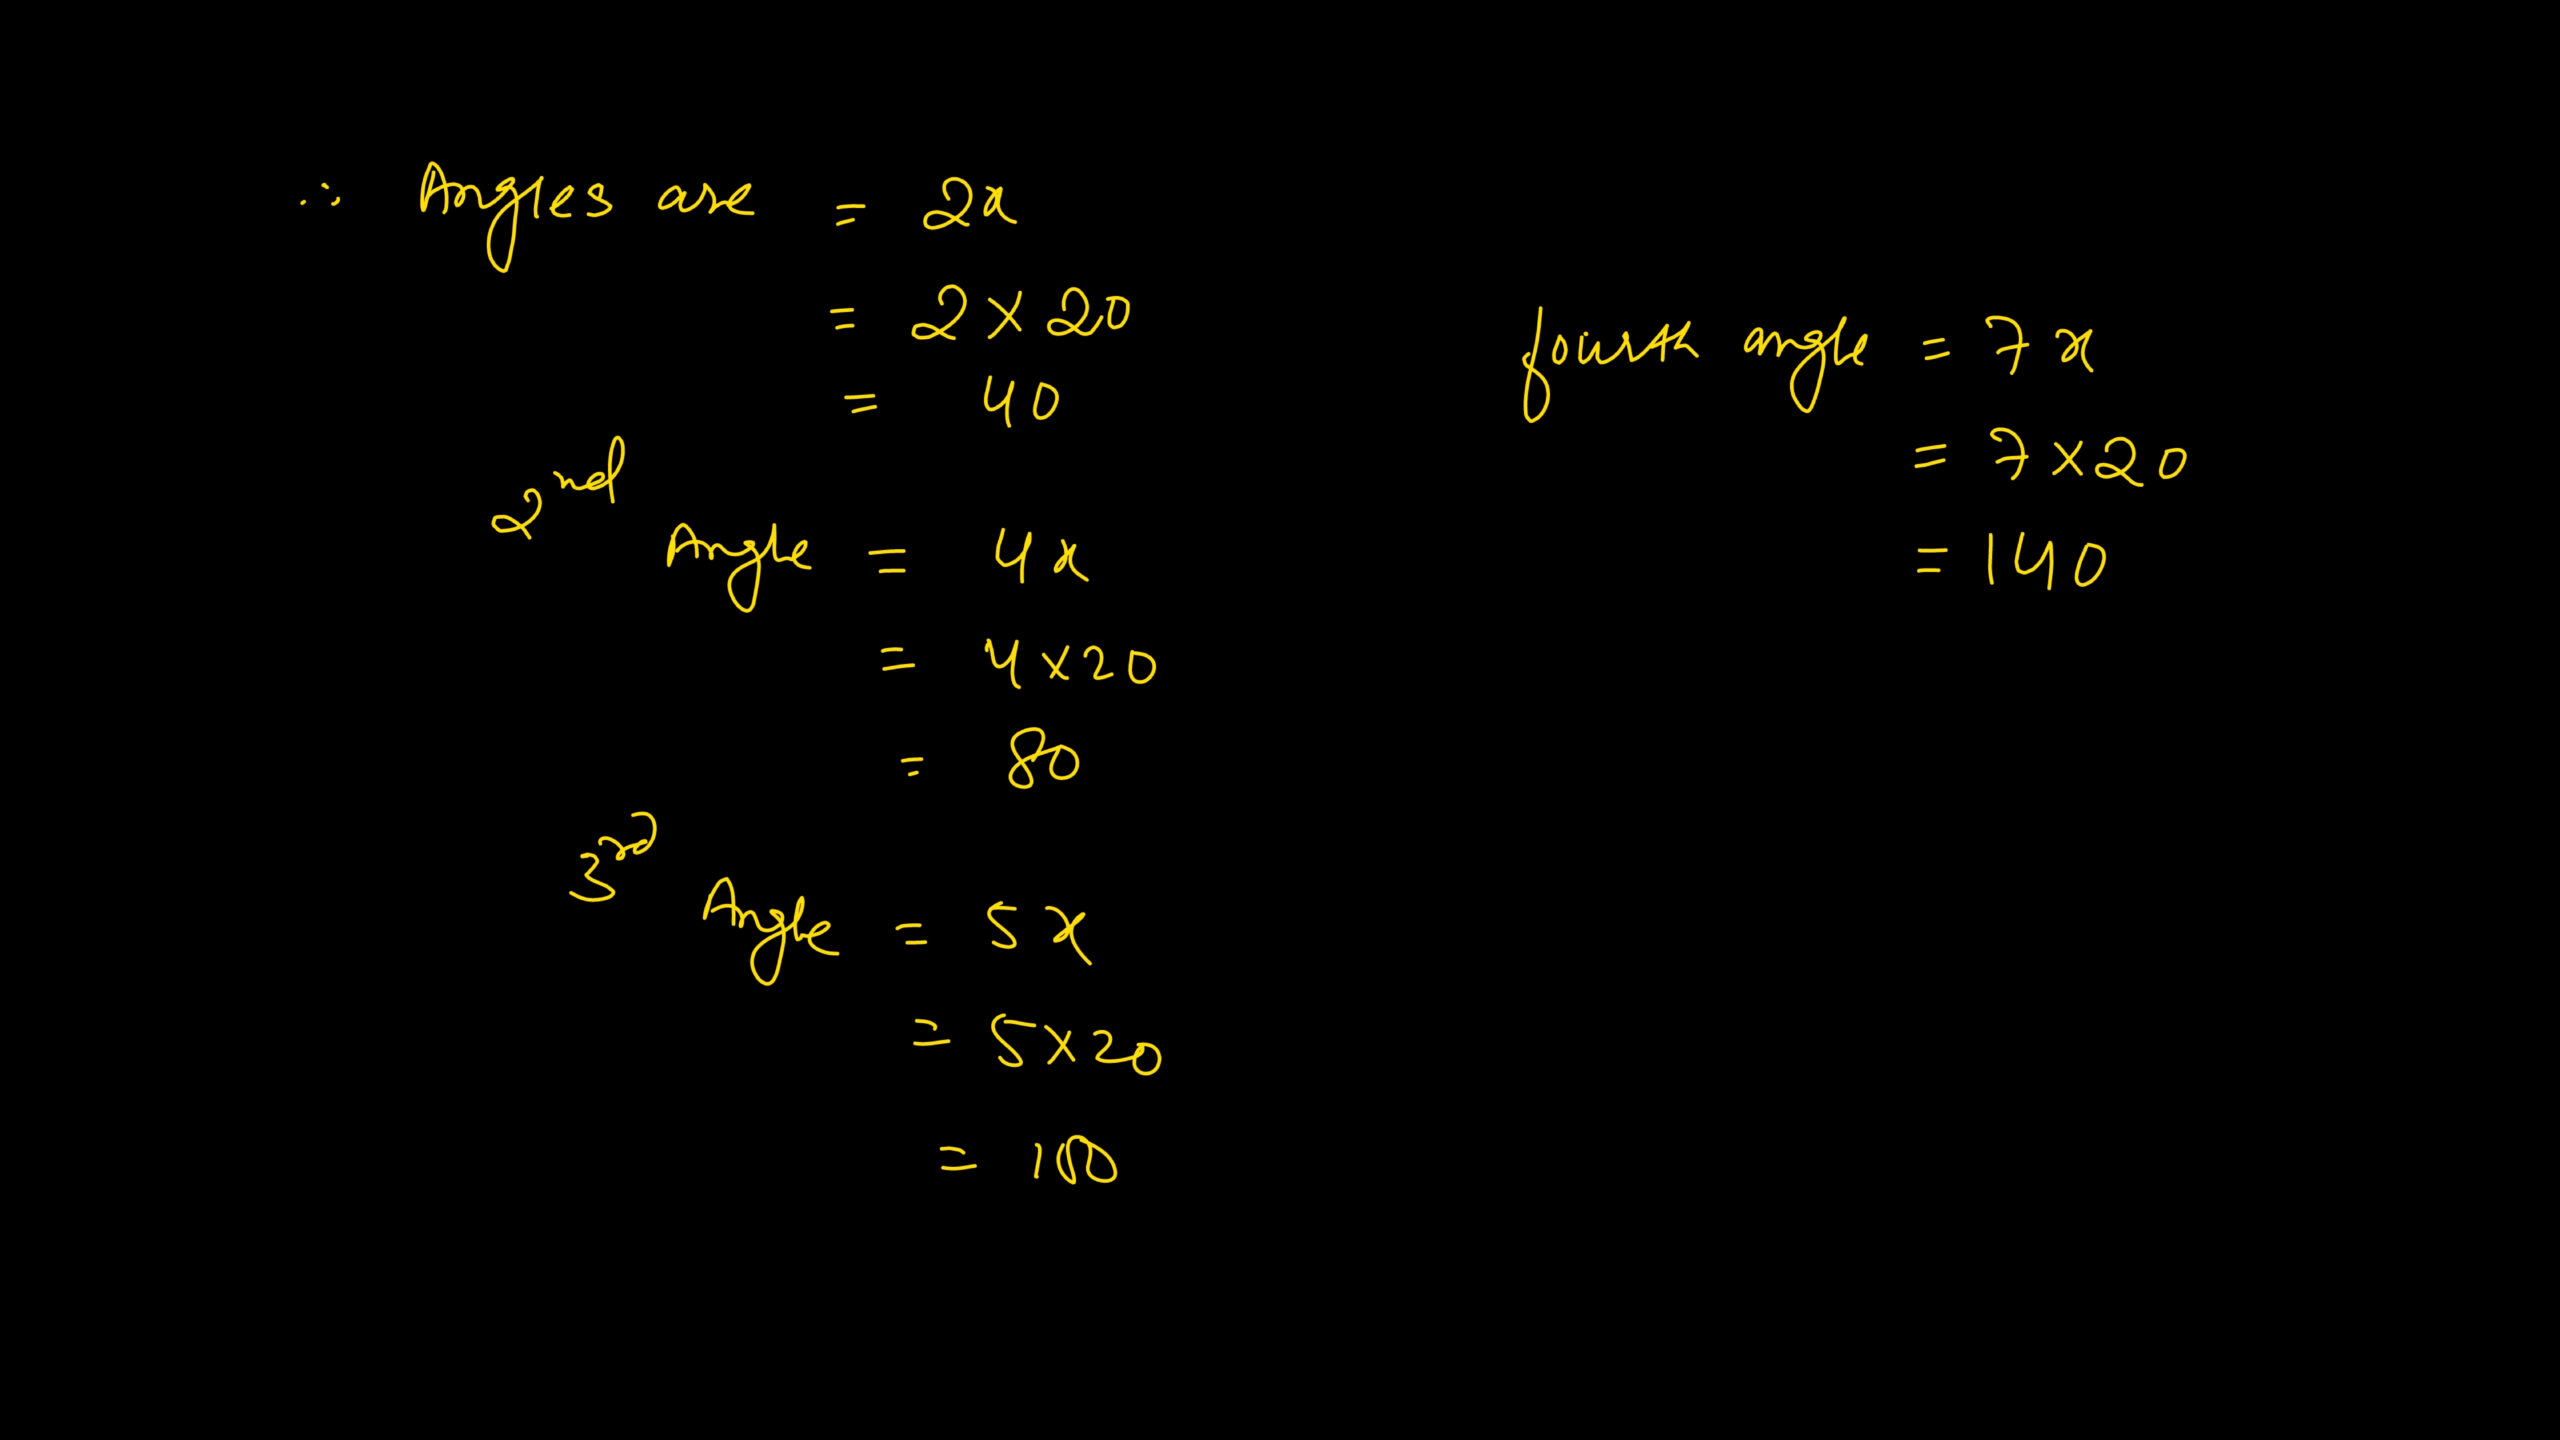 ∴ Angles are = 2x
= 2 × 20
= 40
2nd Angle = 4x
= 4×20
= 80
3rd Angle = 5x
= 5×20
= 100
fourth angle = 7x
= 7×20
= 140